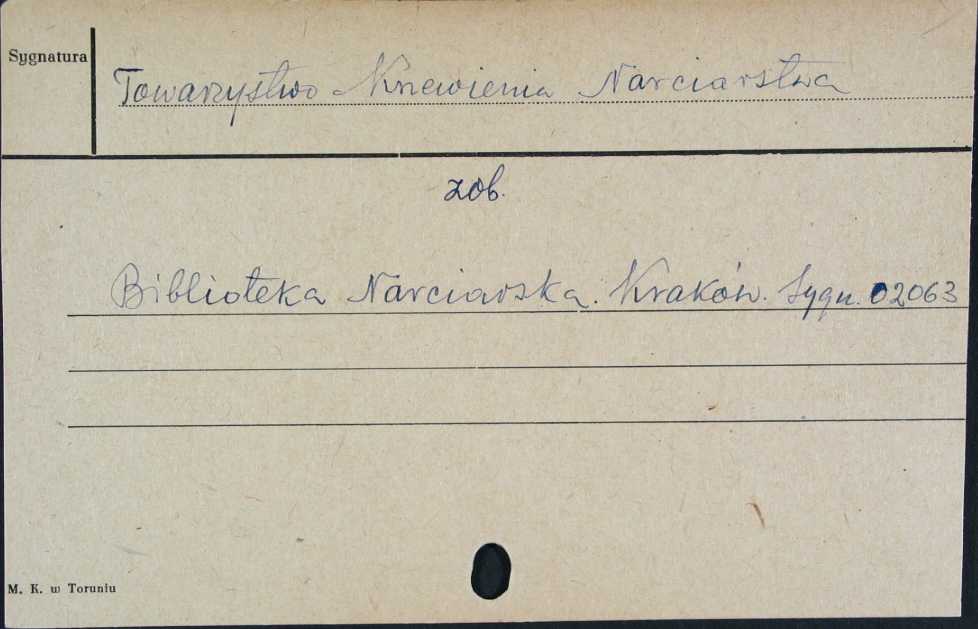 Sygnatura
Towarzystwo Krzewienia Narciarstwa
zob.
Biblioteka Narciarska. Kraków. Sygn. 02063
M. K. w Toruniu